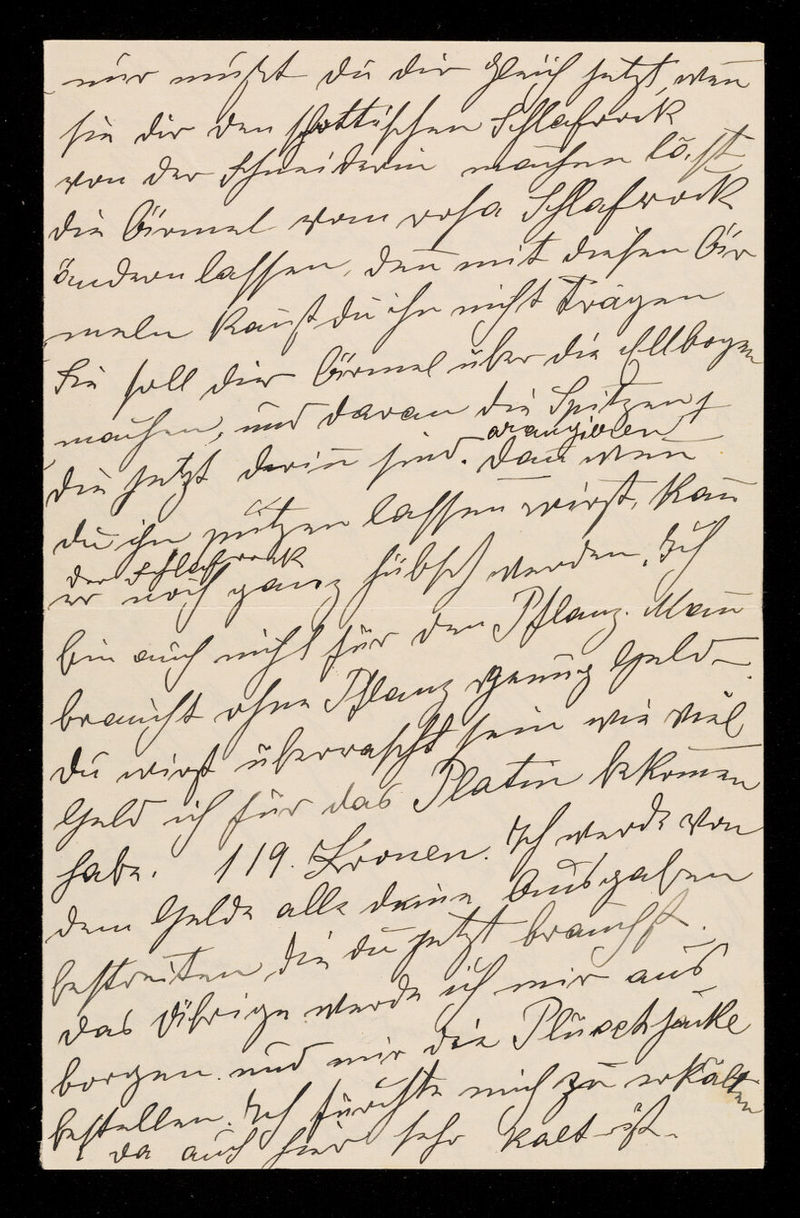 nur mußt du dir gleich jetzt, wen̄
sie dir den schottischen Schlafrock
von der Schneiderin machen läßt,
die Ärmel vom rosa Schlafrock
ändern lassen, den̄ mit diesen Är
meln kan̄st du ihn nicht tragen
Sie soll dir Ärmel über die Ellbogen
machen, und daran die Spitzen
arangieren
die jetzt darin̄ sind. Dan̄ wen̄
du ihn putzen lassen wirst, kan̄
der Schlafrock
er noch ganz hübsch werden. Ich
bin auch nicht für den Pflanz. Man̄
braucht ohne Pflanz genug Geld
du wirst überrascht sein wie viel
Geld ich für das Platin bekom̄en
habe. 119. Kronen. Ich werde von
dem Gelde alle deine Ausgaben
bestreiten die du jetzt brauchst.
das Übrige werde ich mir aus
borgen und mir die Plüschjacke
bestellen. Ich fürchte mich zu erkälten
da auch hier sehr kalt ist.